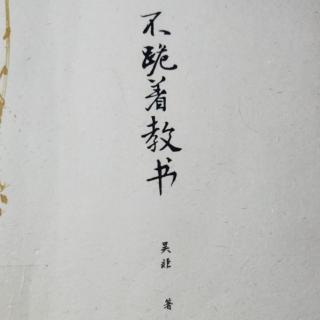 不跪着教书
吴非 著